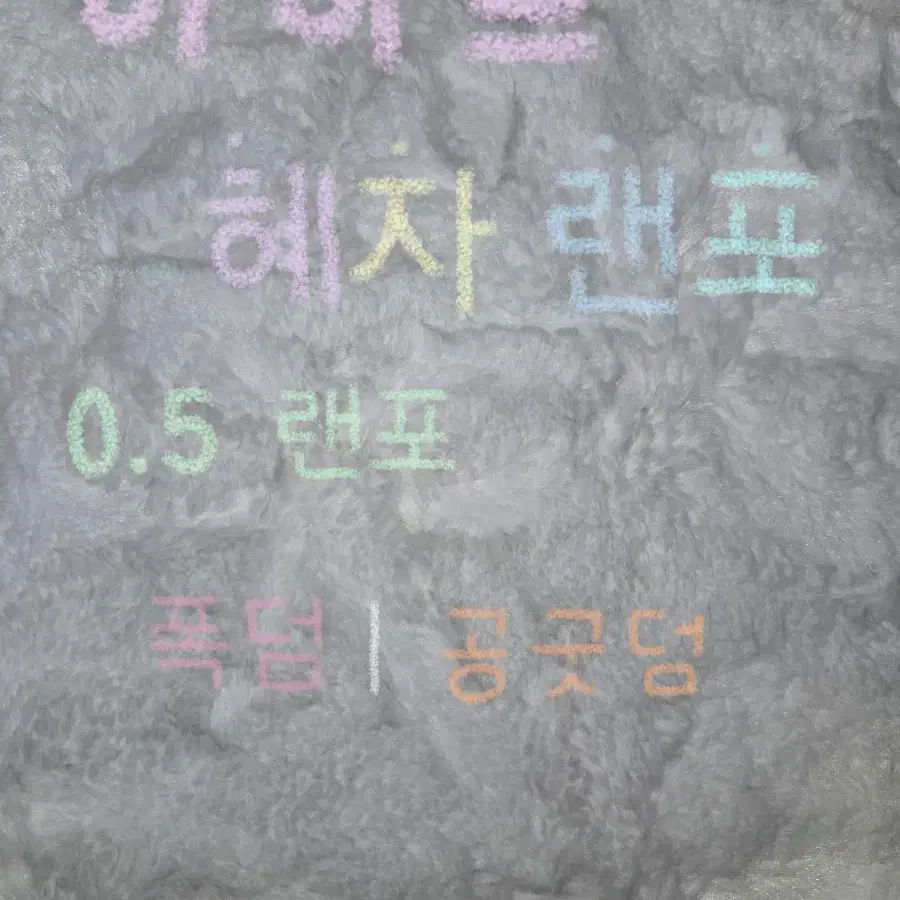 혜자 랜포
0.5 랜포
폭덤 | 공굿덤